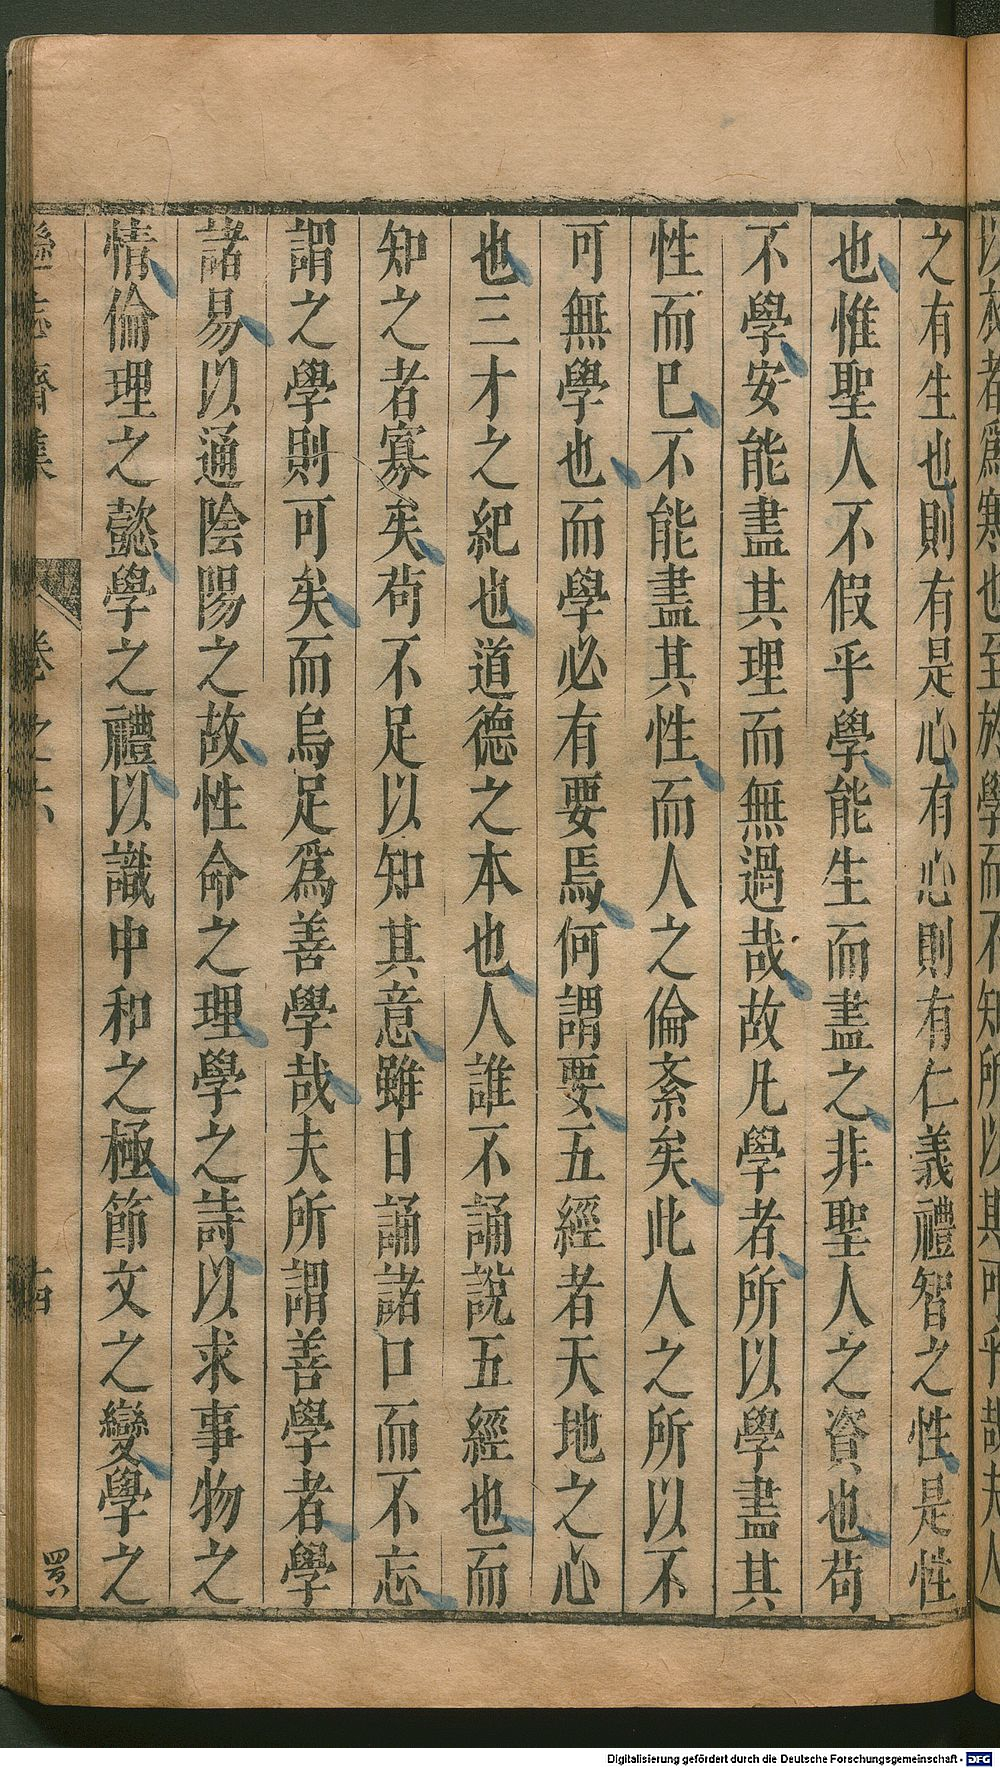 以於者爲寒也至於學而不知所以其可乎哉夫人
之有生也則有是心有心則有仁義禮智之性是性
也惟聖人不假乎學能生而盡之非聖人之資也苟
不學安能盡其理而無過哉故凡學者所以學盡其
性而巳不能盡其性而人之倫紊矣此人之所以不
可無學也而學必有要焉何謂要五經者天地之心
也三才之紀也道德之本也人誰不誦說五經也而
知之者寡矣苟不足以知其意雖日誦諸口而不忘
謂之學則可矣而烏足爲善學哉夫所謂善學者學
諸易以通陰陽之故性命之理學之詩以求事物之
情倫理之懿學之禮以識中和之極節文之變學之
遜志齋集
卷之六
十四
Digitalisierung gefördert durch die Deutsche Forschungsgemeinschaft - DFG